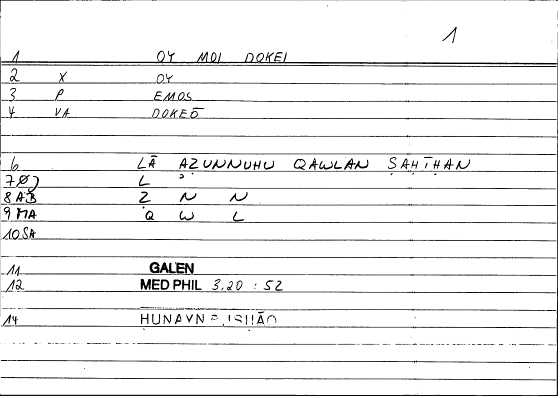 1
1 OY MOI DOKEI
2 X OY
3 P EMOS
4 VA DOKEŌ
6 LĀ AẒUNNUHU QAWLAN ṢAḤĪḤAN
7 L
8 AB Ẓ N N
9 MA Q W L
10 SA
11 GALEN
12 MED PHIL 3.20 : 52
14 HUNAYN